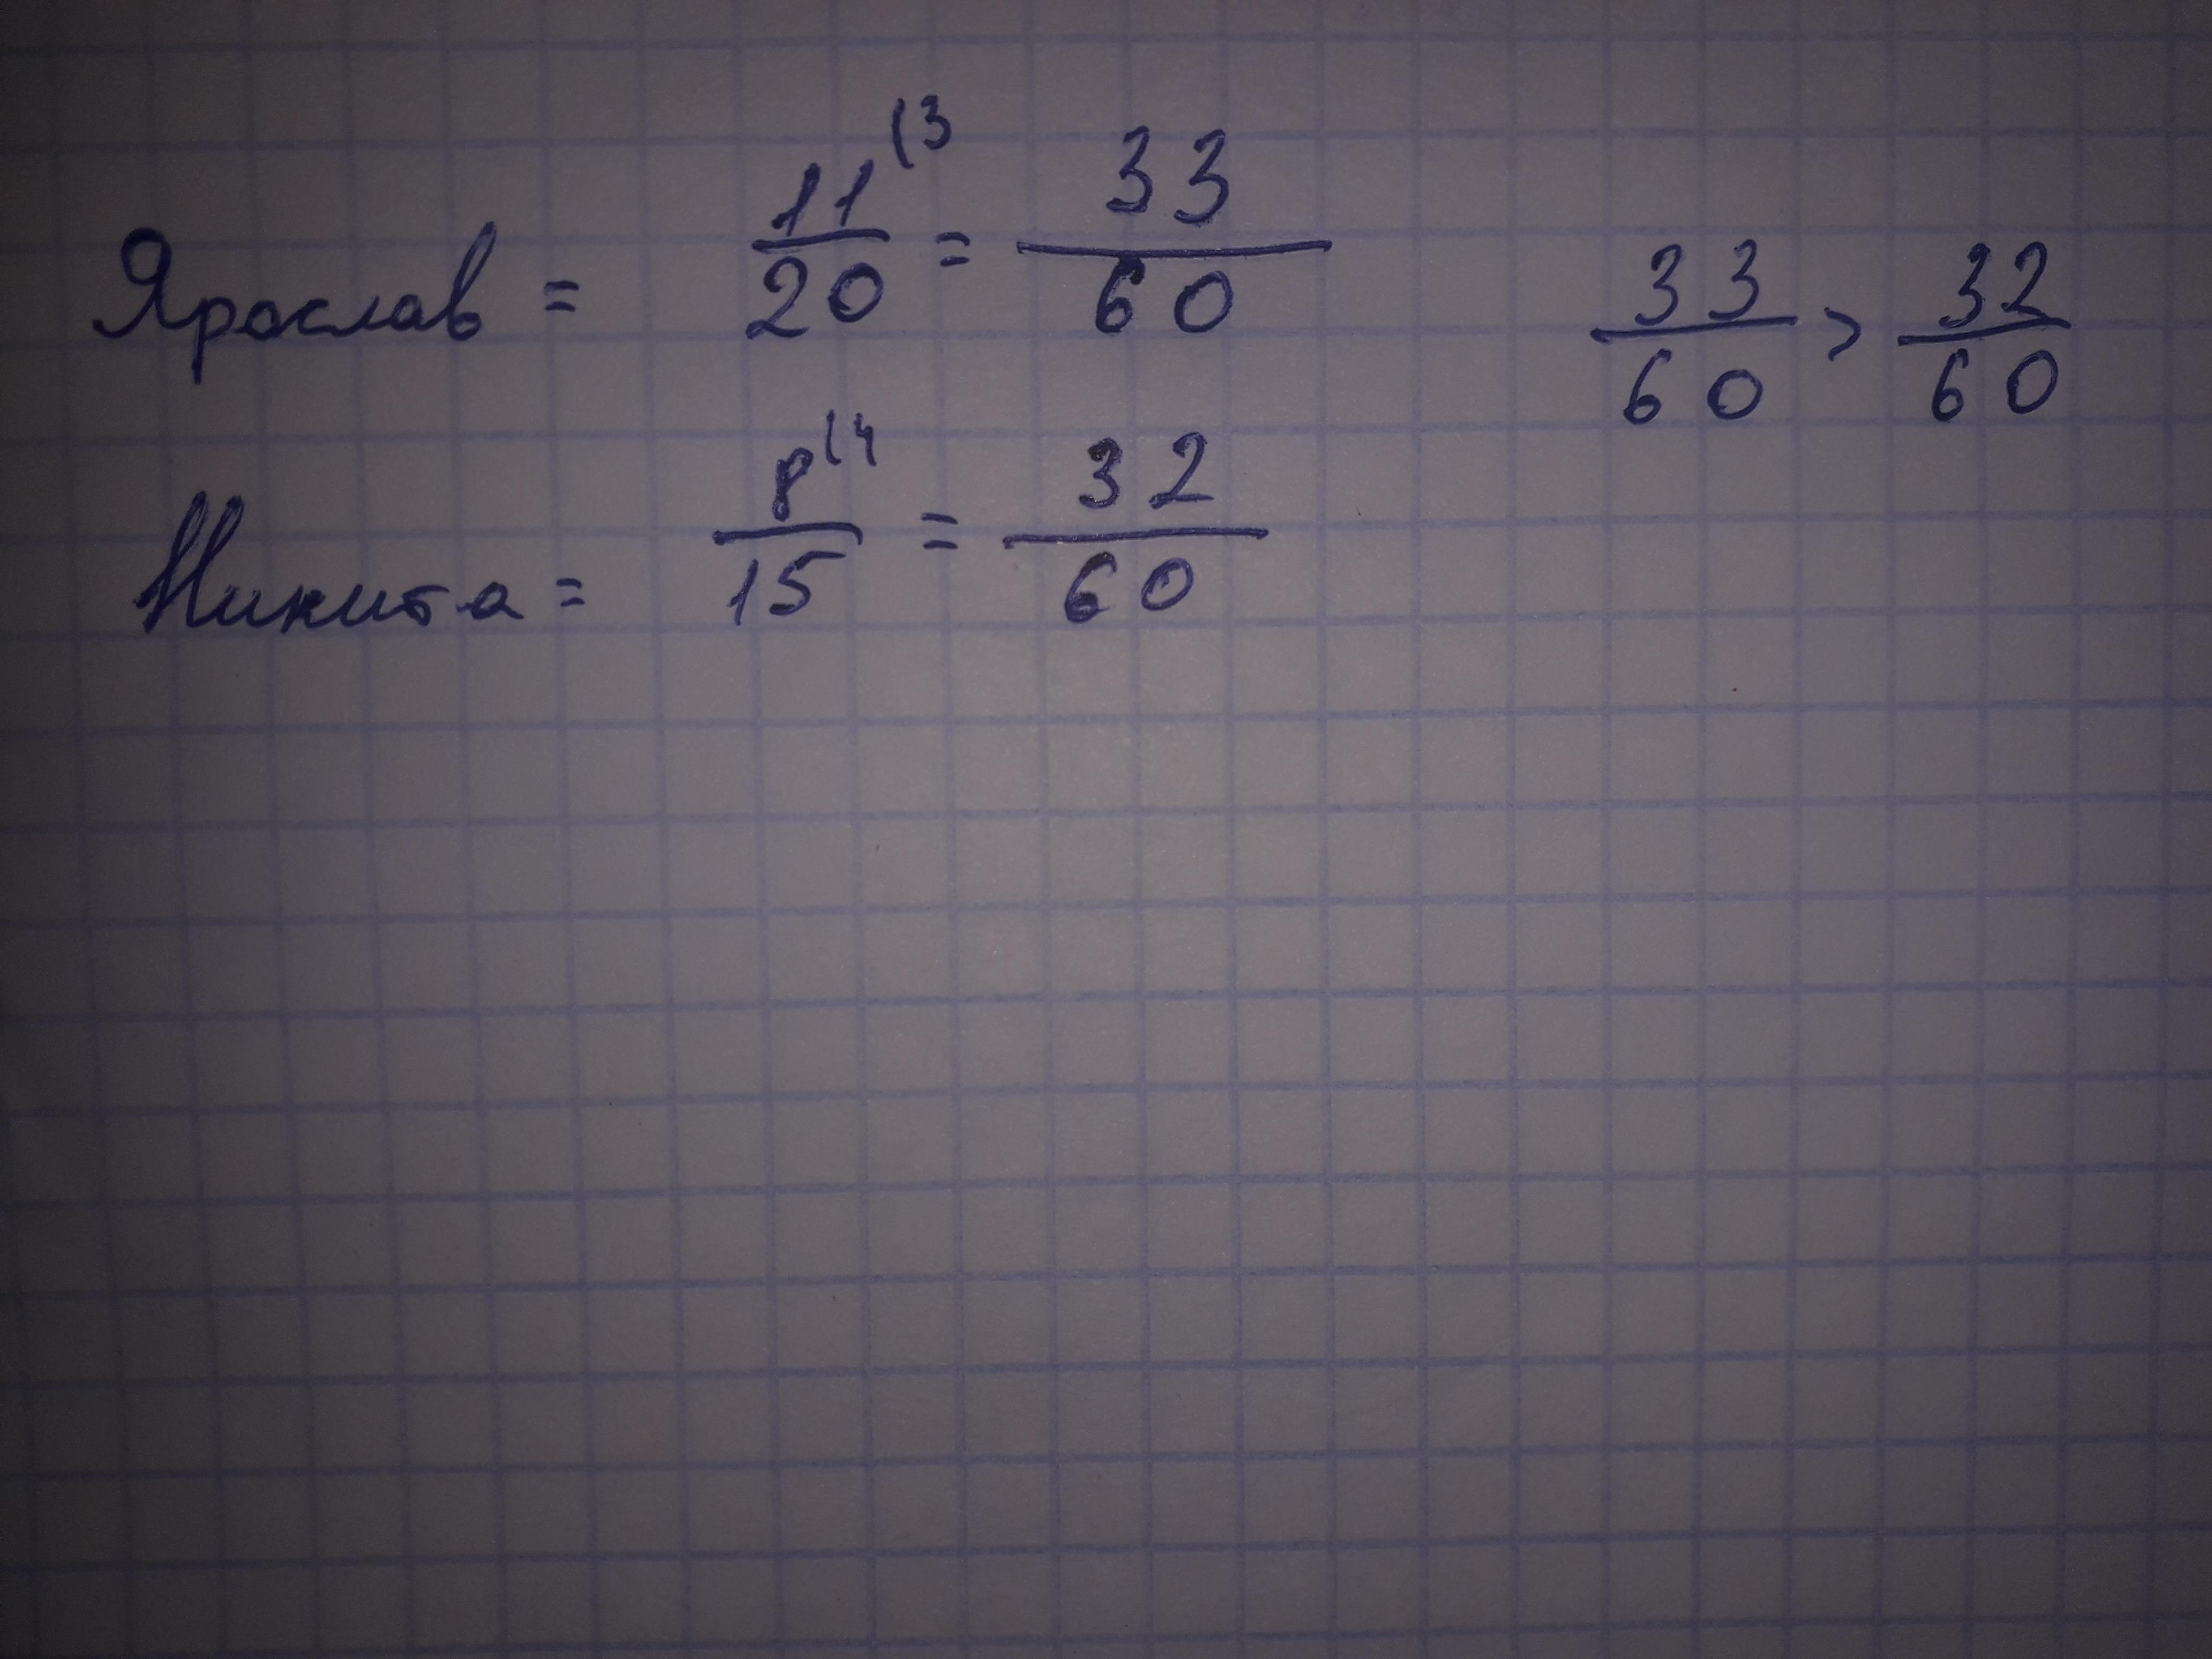 Ярослав = 11/20 (3 = 33/60
33/60 > 32/60
Никита = 8/15 (4 = 32/60